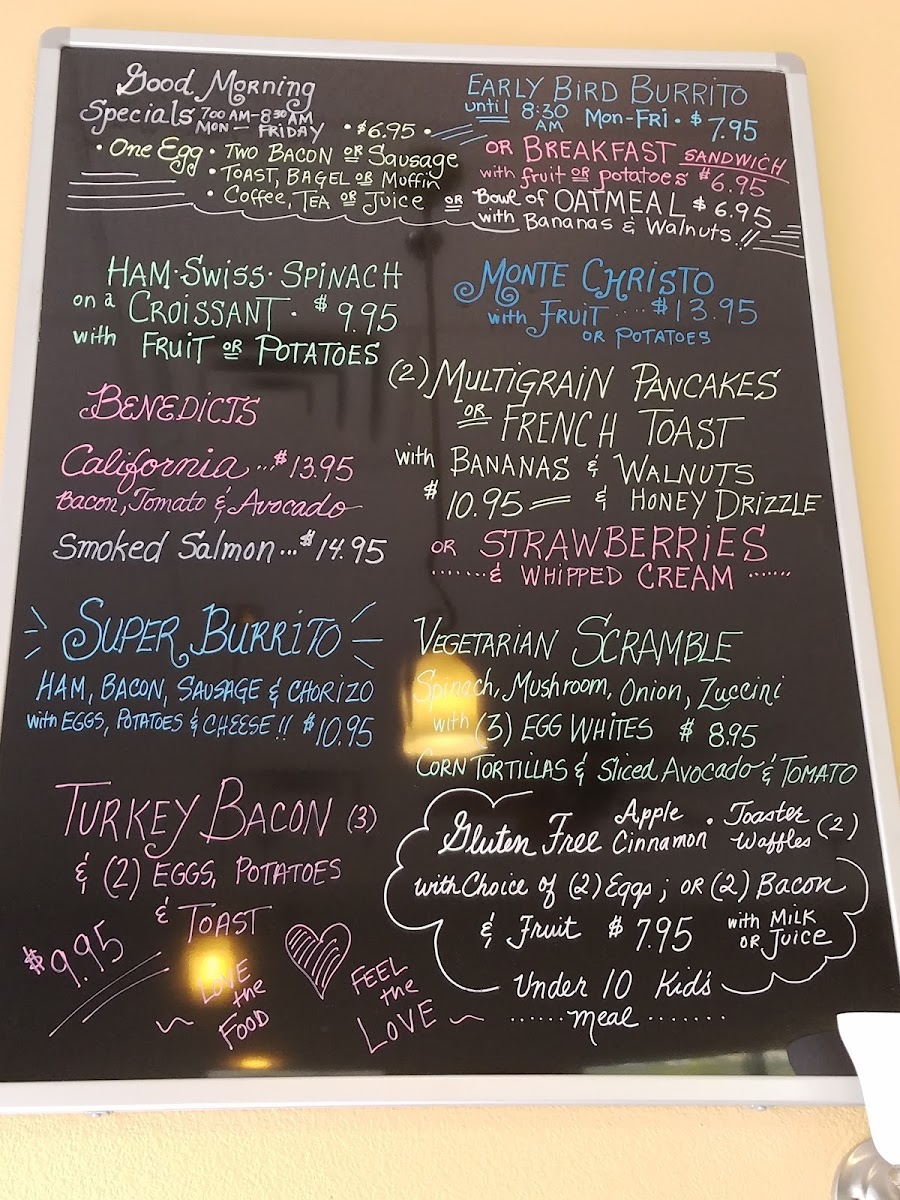 Good Morning
Specials 7:00 AM-8:30 AM
MON - FRIDAY • $6.95 •
• One Egg • TWO BACON OR Sausage
• TOAST, BAGEL OR Muffin
• Coffee, TEA OR Juice OR
EARLY BIRD BURRITO
until 8:30 AM Mon-Fri • $7.95
OR BREAKFAST SANDWICH
with fruit OR potatoes $6.95
Bowl of OATMEAL $6.95
with Bananas & Walnuts !!
HAM • SWISS • SPINACH
on a CROISSANT • $9.95
with FRUIT OR POTATOES
MONTE CHRISTO
with FRUIT .... $13.95
OR POTATOES
BENEDICTS
California ... $13.95
Bacon, Tomato & Avocado
Smoked Salmon ... $14.95
(2) MULTIGRAIN PANCAKES
OR FRENCH TOAST
with BANANAS & WALNUTS
$10.95 & HONEY DRIZZLE
OR STRAWBERRIES
....... & WHIPPED CREAM .......
SUPER BURRITO
HAM, BACON, SAUSAGE & CHORIZO
with EGGS, POTATOES & CHEESE!! $10.95
VEGETARIAN SCRAMBLE
Spinach, Mushroom, Onion, Zuccini
with (3) EGG WHITES $8.95
CORN TORTILLAS & Sliced Avocado & TOMATO
TURKEY BACON (3)
& (2) EGGS, POTATOES
& TOAST
$9.95
LOVE the FOOD
FEEL the LOVE
Gluten Free Apple Cinnamon • Toaster Waffles (2)
with Choice of (2) Eggs; OR (2) Bacon
& Fruit $7.95 with MILK OR Juice
Under 10 Kid's
...... meal .......